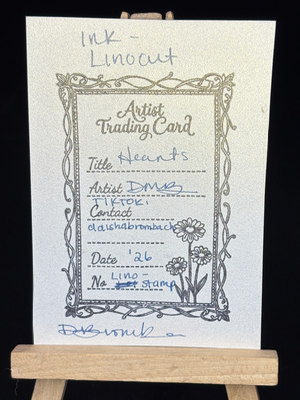 Ink -
Linocut
Artist
Trading Card
Title Hearts
Artist DMB
TIKTOK:
Contact
Date '26
No Lino -
stamp